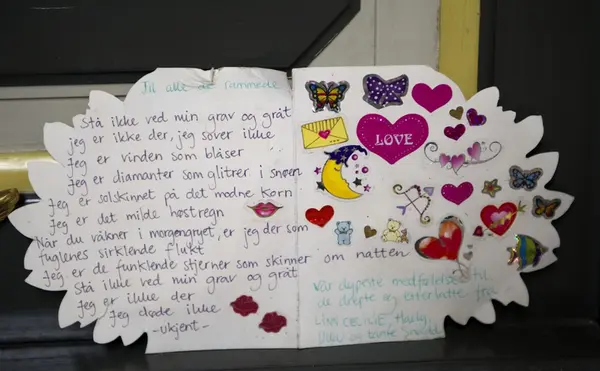 Til alle de rammede
Stå ikke ved min grav og gråt
jeg er ikke der, jeg sover ikke
Jeg er vinden som blåser
Jeg er diamanter som glitrer i snøen
Jeg er solskinnet på det modne korn
Jeg er det milde høstregn
Når du våkner i morgengryet, er jeg der som
fuglenes sirklende flukt
Jeg er de funklende stjerner som skinner om natten
Stå ikke ved min grav og gråt
Jeg er ikke der
Jeg døde ikke
-ukjent-
LOVE
Vår dypeste medfølelse til
de drepte og etterlatte fra
LINN CECILIE,